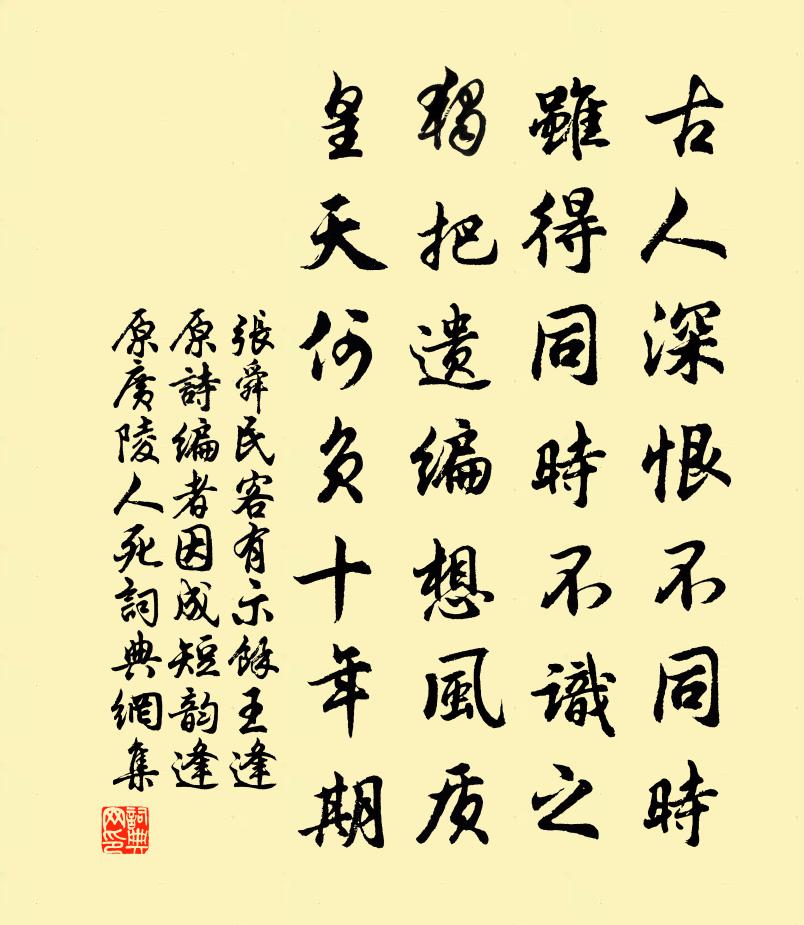 古人深恨不同時
雖得同時不識之
獨把遺编想風质
皇天何负十年期
張舜民客有示餘王逢
原詩编者因成短韵逢
原廣陵人死詞典網集
詞典
网印